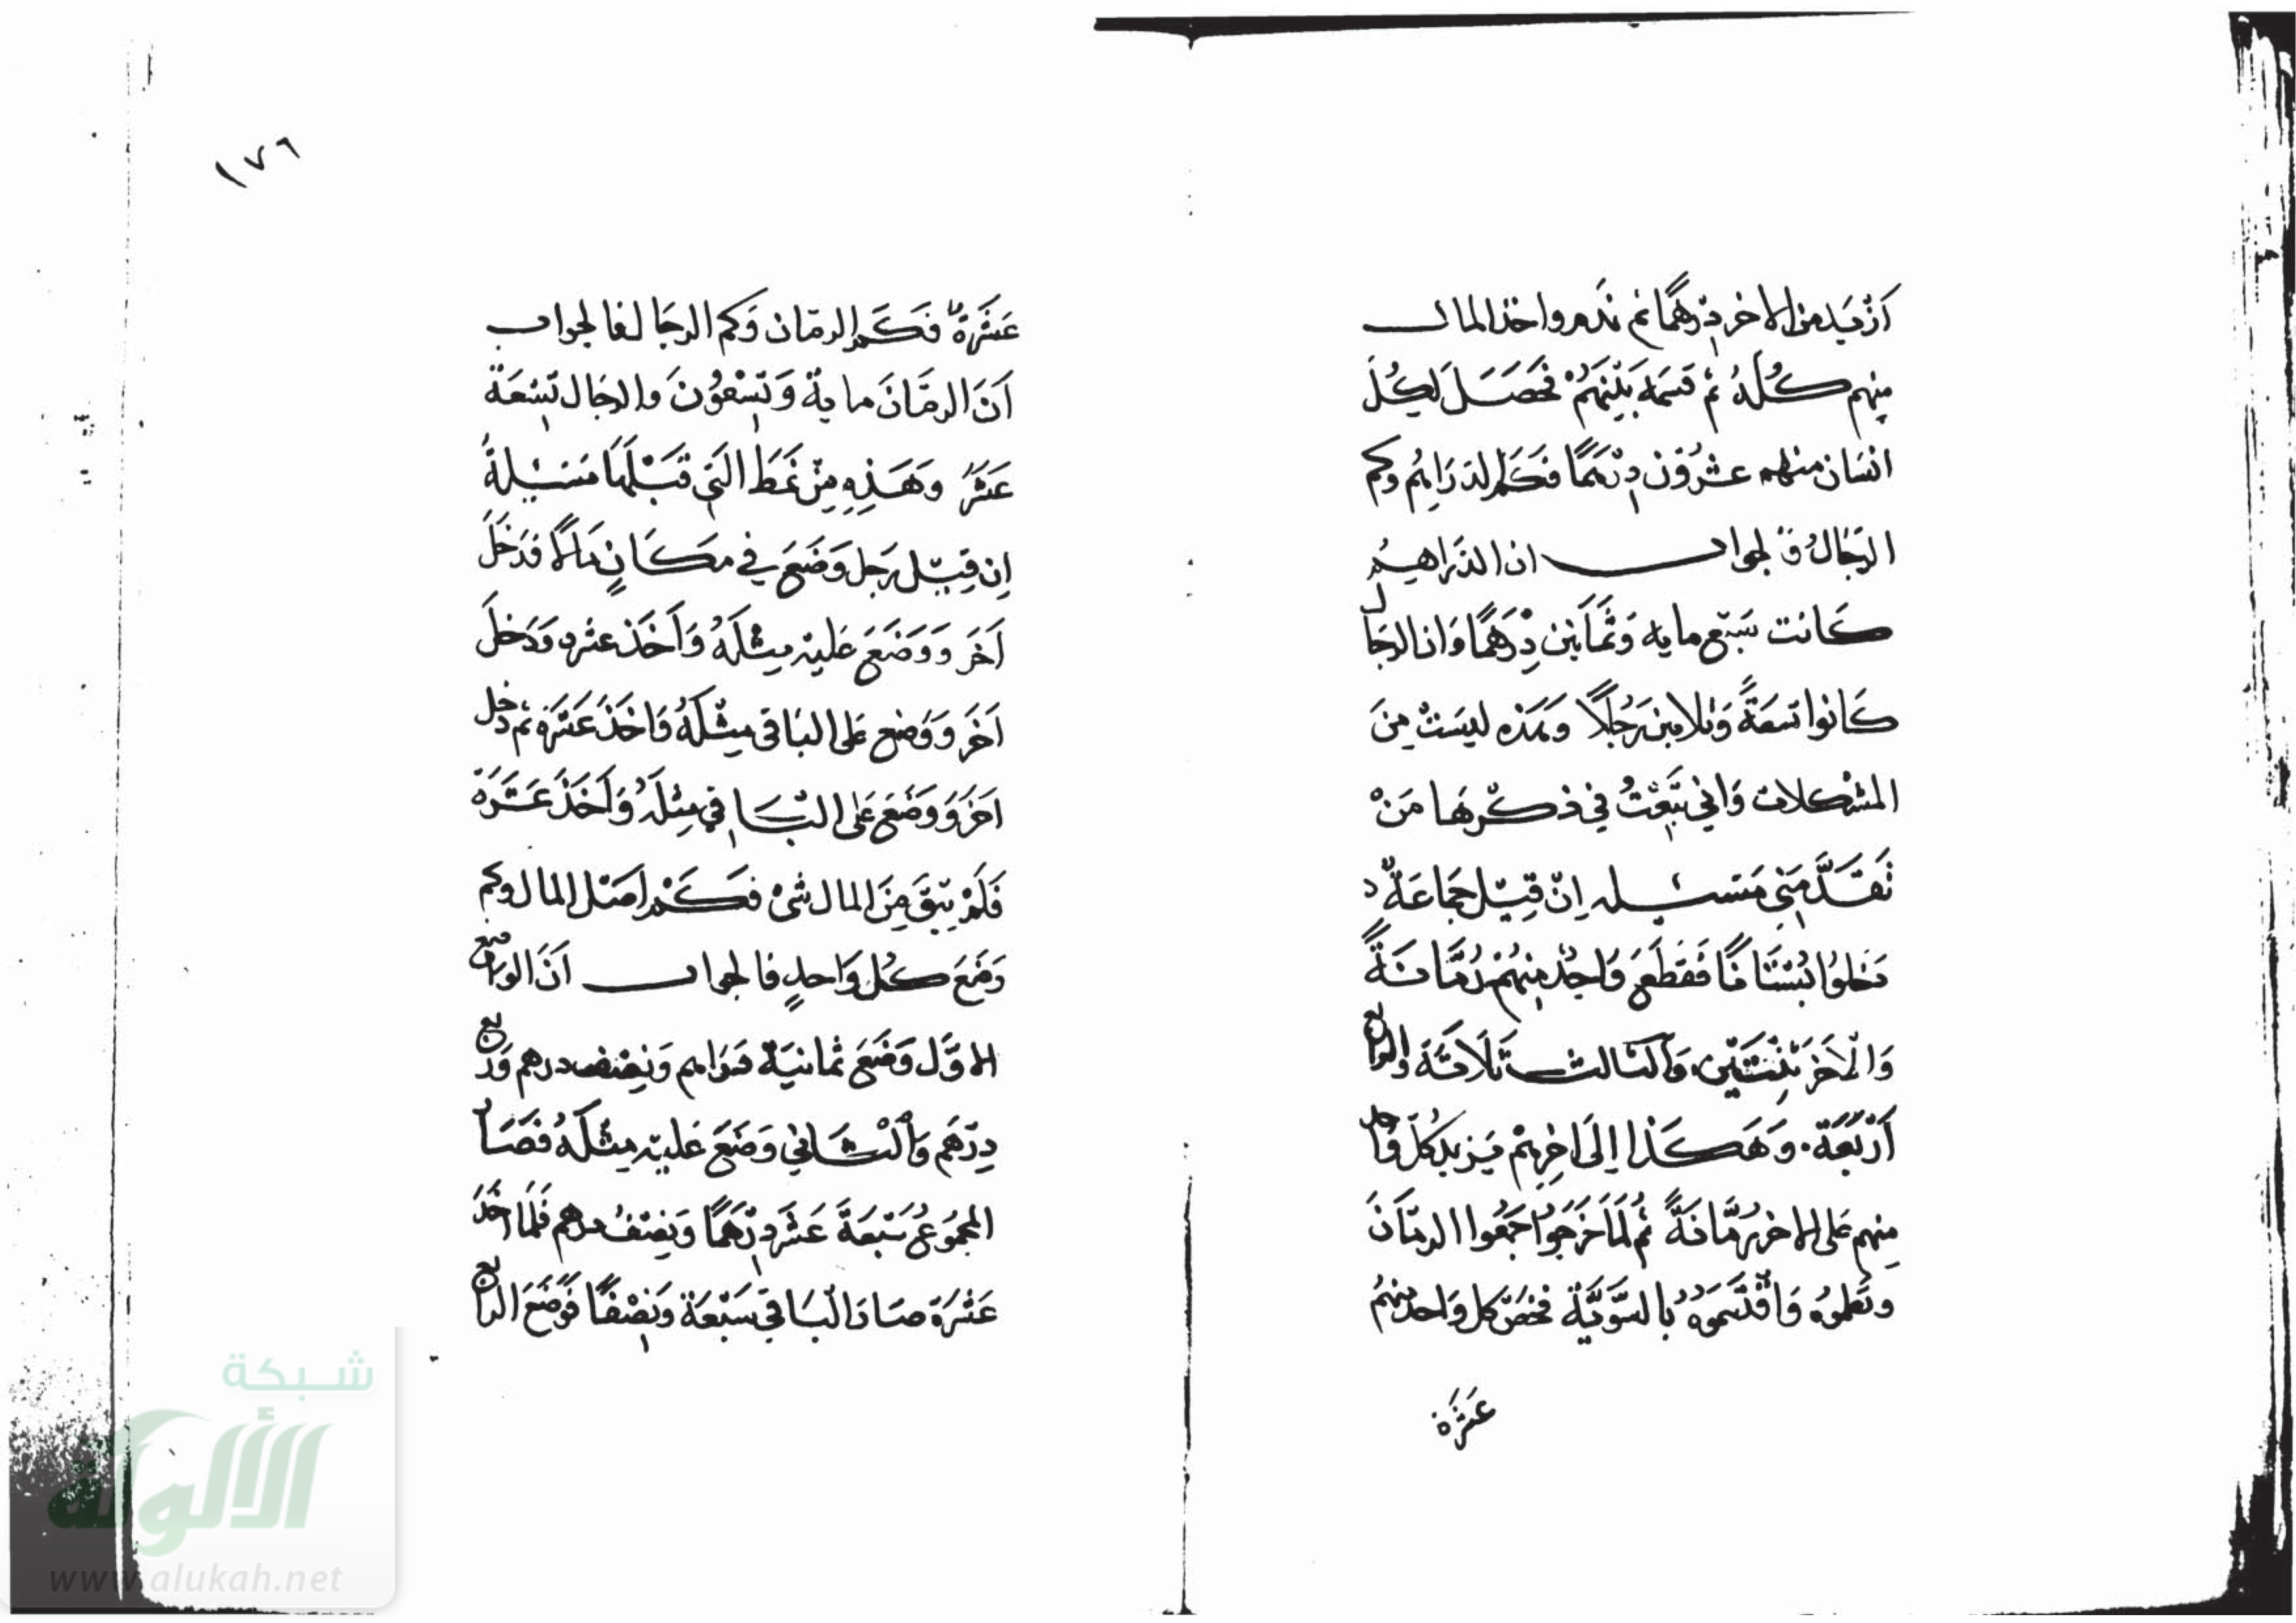 أزْيَد من الاخر دِرْهمًا ثم ندم واخذ المال
مِنهم كُلهُ ثم قسَمَهُ بَيْنَهُمْ فحَصَلَ لِكُل
انسَان منهم عشرُوْن دِرْهَمًا فكَم الدرَاهِمُ وكم
الرّجَالُ فَالجواب ان الدَراهيم
كَانت سَبْع مايه وَثَمانين دِرْهَمًا وَان الرجَال
كَانوا تسعَةً وَثلاثين رَجُلاً وَهَذه ليسَتْ مِنَ
المشْكلات وَاني تَبِعْتُ في ذكْرِهَا مَنْ
تَقَدَّمَني مَسْئيله اِنْ قِيْل جمَاعَةٌ
دَخلوُا بُسْتَانًا فَقطَعَ وَاحِدٌ مِنهُمْ رُمَّانَةً
وَالآخَر ثِنْتَيْن وَالثالث ثَلاثَةَ وَالرابع
أرْبَعَة. وَهَكَذا اِلَى اخِرِهِمْ يَزيد كل وَاحد
مِنهم عَلى الاخر رُمَّانَةً ثُم لَمَا خَرَجوُا جَمَعُوا الرمّانَ
وَاقْتَسَموُهُ بالسَّويَّة فخصَّ كل وَاحد مِنهُم
عَشرَة
١٧٦
عَشَرَةٌ فَكَم الرمّان وَكم الرجَال فالجواب
اَنَ الرمّانَ ماية وَتِسْعوُنَ والرجَال تِسْعَةَ
عَشَرَ وَهَذِهِ مِنْ نَمَط الَتي قَبْلَهَا مَسْئيلةُ
اِن قِيْل رَجل وَضَعَ في مَكَانٍ مَالاً فدَخَلَ
آخَر وَوَضَعَ عَليْه مِثلَهُ وَأخَذ عشره وَدَخلَ
آخَر وَوَضع عَلى البَاقي مِثلَهُ وَاخَذَ عَشَرَة ثم دخل
اخَر وَوَضَعَ عَلى البَاقي مِثلَهُ وَأخَذَ عَشَرَة
فَلَمْ يَبْقَ مِنَ المال شئ فَكَمْ اصَل المال وكم
وَضَعَ كُل وَاحدٍ فالجواب اَنَ الوَاضع
الاوَّل وَضَعَ ثمانيَة دَرَاهم وَنِصْف درهم وَربع
دِرْهَم وَالثَّاني وَضَعَ عَليْه مِثلَهُ فصَار
المجموُع سَبْعَةَ عَشَر دِرْهَمًا وَنِصْفُ درهم فَلمَا اخَذَ
عَشْرَة صَارَ البَاقي سَبْعَة وَنِصْفًا فَوَضَعَ الرابع
شبكة
الألوكة
www.alukah.net